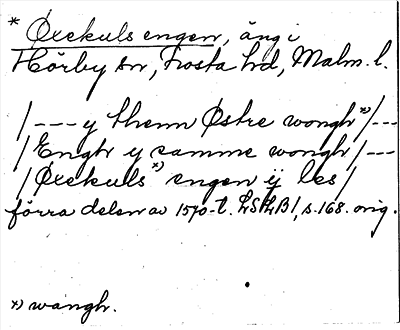 * Öxekuls engen, äng i
Hörby sn, Frosta hd, Malm. l.
/--- y thenn Østre wongh *)/---
/Engh y samme wongh/---
/Øxekuls *) engen ij les/
förra delen av 1570-t. LSLB 1, s. 168. orig.
*) wangh.